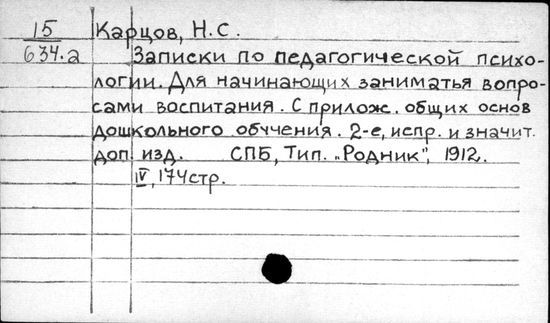 15 Карцов, Н.С.
634.а Записки по педагогической психо-
логии. Для начинающих заниматья вопро-
сами воспитания. С прилож. общих основ
дошкольного обччения. 2-е, испр. и значит.
доп. изд. СПБ, Тип. „Родник", 1912.
IV, 174стр.